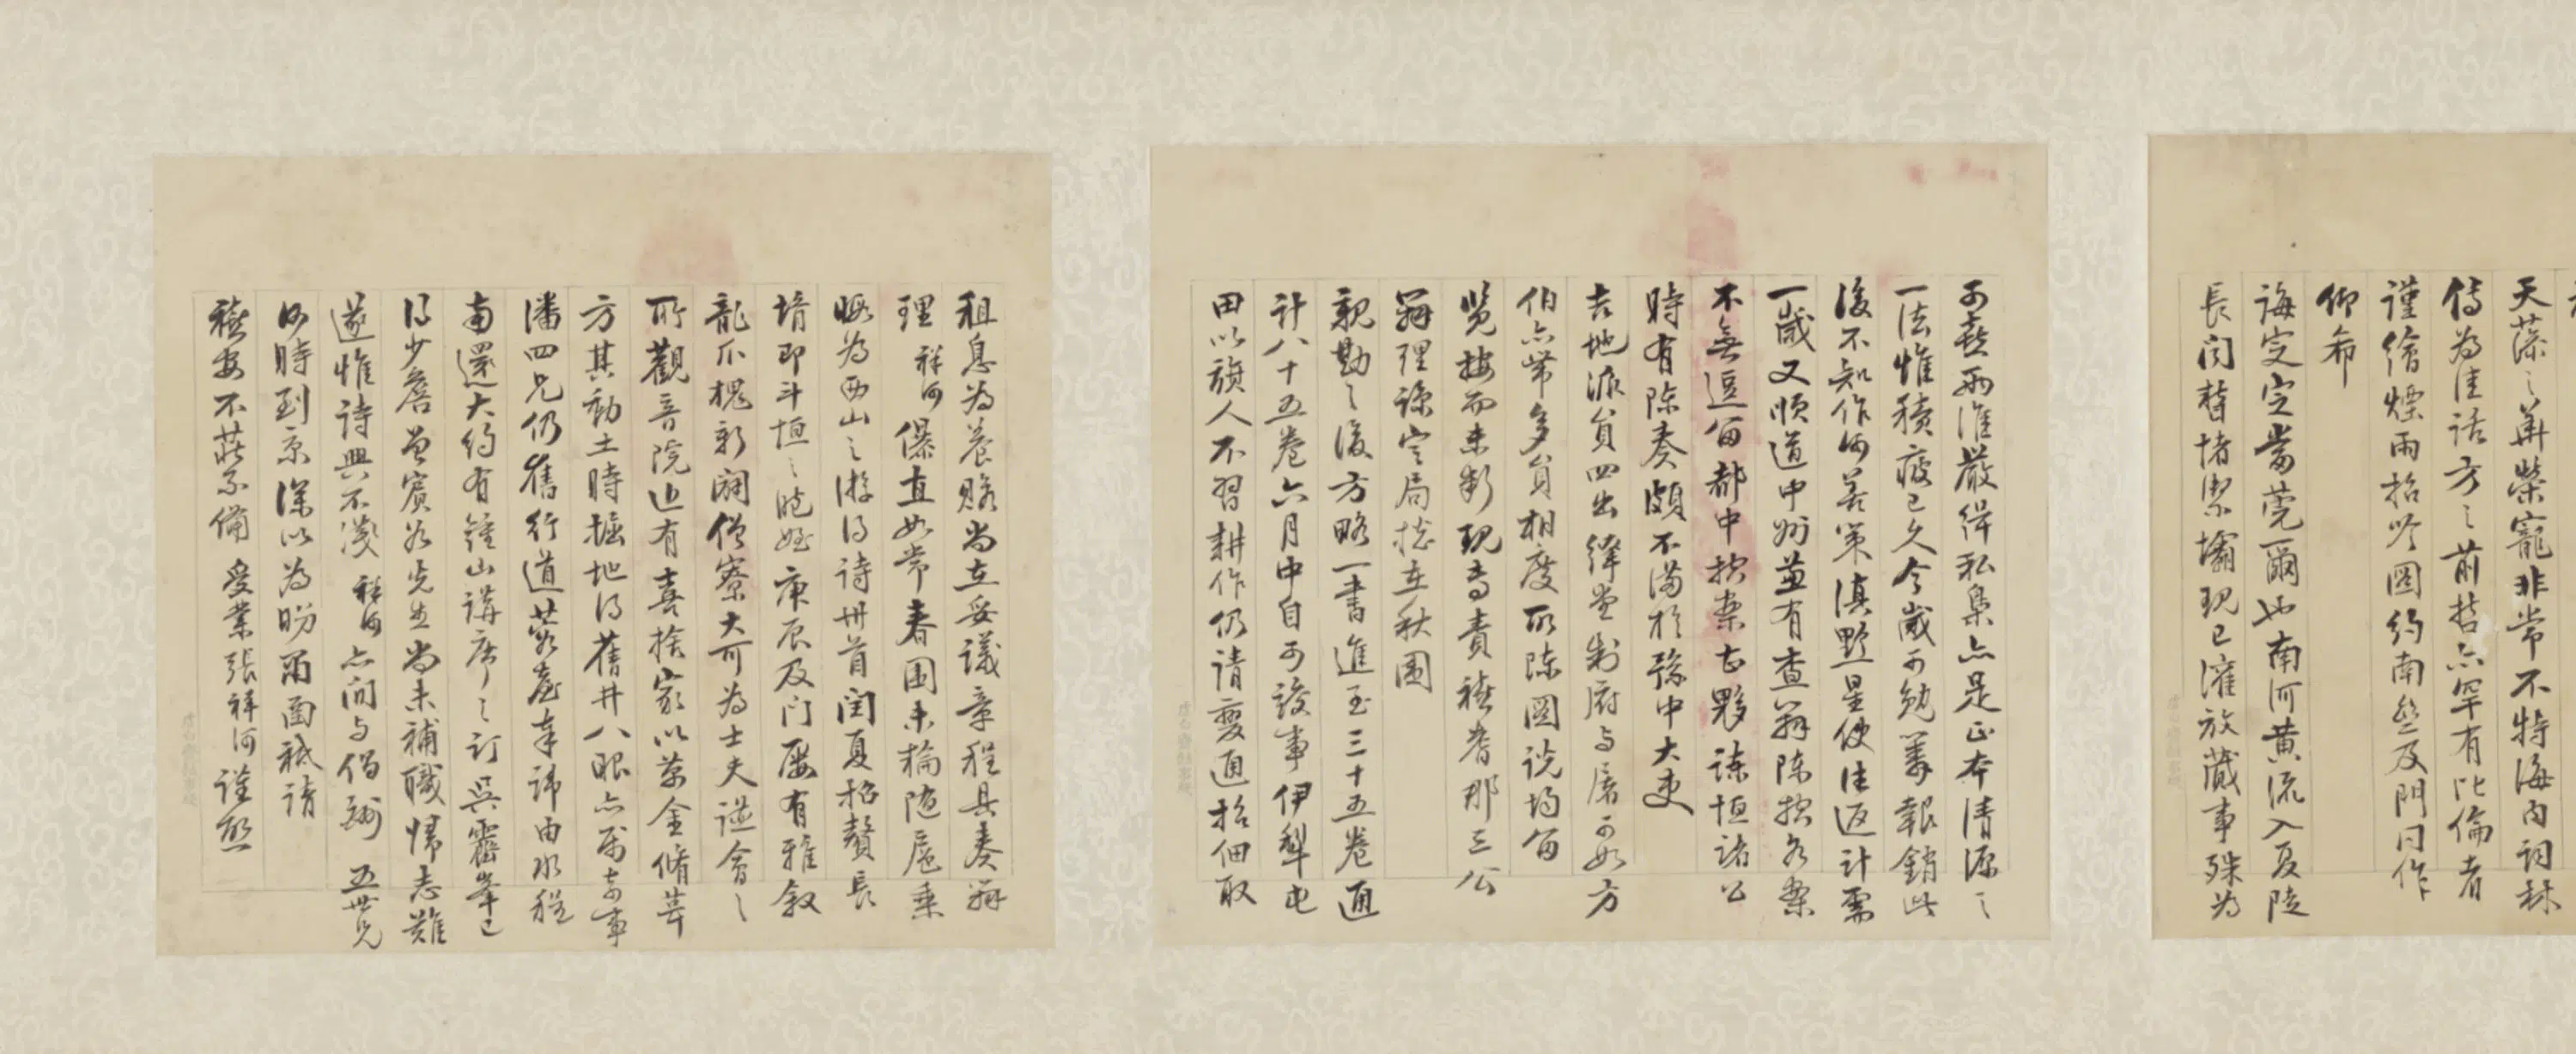 天藻之華榮寵非常不特海內詞林
傳為佳話方之前哲亦罕有比倫者
謹繪煙雨招吟圖約南熏及門同作
仰希
誨定定當莞爾也南河黃流入夏陡
長閘替堵禦壩現已灌放蕆事殊為
可喜兩淮嚴緝私梟亦是正本清源之
一法惟積疲已久今歲可勉籌報銷此
後不知作何善策滇黔星使往返計需
一歲又順道中州並有查辦陳控各案
不無逗留都中控案甚夥諫垣諸公
時有陳奏頗不滿於豫中大吏
吉地派員四出繹堂制府与
伯亦帶多員相度所陳圖說均留
覽按而未斷現高責禧耆那三公
辦理諒定局總在秋圍
親勘之後方略一書進至三十五卷通
計八十五卷六月中自可竣事伊犁屯
田以旗人不習耕作仍請變通招佃取
租息為養贍尚在妥議章程具奏辦
理 祥河 儤直如常春圍未輪隨扈乘
暇為西山之游得詩卅首閏夏招贊長
壻即斗垣之晥姪庚辰及门屢有雅敘
龍爪槐新闢僧寮大可為士夫讌會之
所觀音院迤有喜捨家以萬金脩葺
方其動土時掘地得舊井八眼亦屬奇事
潘四兄仍舊行道蓉臺奉諱由水程
南還大約有鍾山講席之訂吳霍峯已
得少詹曾賓谷先生尚未補職歸志難
遂惟詩興不淺 祥河 亦間与倡酬 五世兄
何時到京深以為盼肅函祗請
禧安不莊不備 受業張祥河謹啟